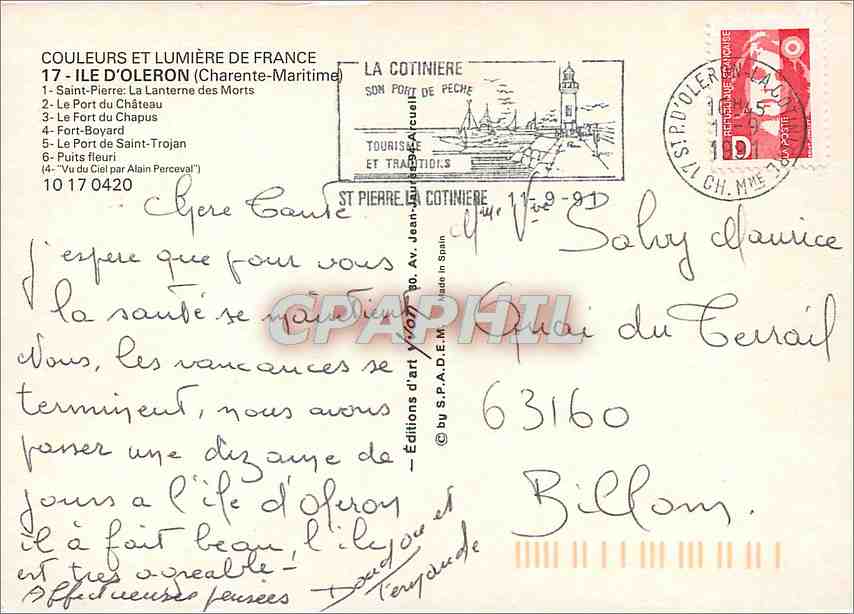 COULEURS ET LUMIÈRE DE FRANCE
17 - ILE D'OLERON (Charente-Maritime)
1- Saint-Pierre: La Lanterne des Morts
2- Le Port du Château
3- Le Fort du Chapus
4- Fort-Boyard
5- Le Port de Saint-Trojan
6- Puits fleuri
(4- "Vu du Ciel par Alain Perceval")
10 17 0420
LA COTINIERE
SON PORT DE PECHE
TOURISME
ET TRADITIONS
ST PIERRE LA COTINIERE 11-9-91
17 ST P. D'OLERON-LA COT
16H45
1991
CH. MME
REPUBLIQUE FRANÇAISE
D
LA POSTE
Chere Tante
j'espere que pour vous
la santé se maintient
Nous, les vancances se
terminent, nous avons
passer une dizaine de
jours a l'ile d'oleron
il à fait beau, l'ile
est tres agreable -
Affectueuses pensées
et
Fernande
Mme Vve Salvy Maurice
Quai du Terrail
63160
Billom.
— Éditions d'art Yvon, 30, Av. Jean-Jaurès 94 Arcueil
© by S.P.A.D.E.M. Made in Spain
CPAPHIL